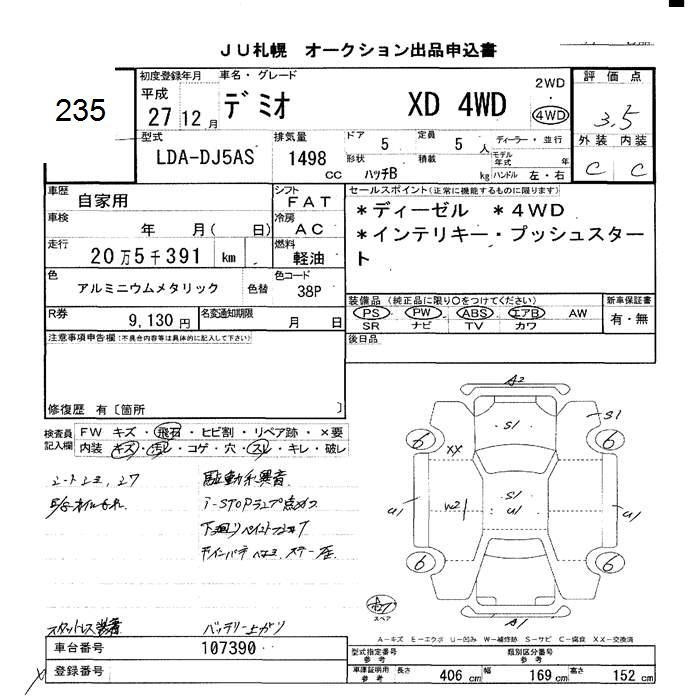 JU札幌 オークション出品申込書
235
初度登録年月 車名・グレード 2WD 評価点
平成 27 12月 デミオ XD 4WD ・ 4WD 3.5
型式 排気量 ドア 定員 ディーラー・並行 外装 内装
LDA-DJ5AS 1498 cc 5 5人 モデル年式 年 C C
形状 ハッチB 積載 kg ハンドル 左・右
車歴 自家用 シフト FAT セールスポイント(正常に機能するものに限ります)
車検 年 月( 日) 冷房 AC *ディーゼル *4WD
走行 20万5千391 km 燃料 軽油 *インテリキー・プッシュスター
ト
色 アルミニウムメタリック 色替 色コード 38P
装備品(純正品に限り○をつけてください) 新車保証書
R券 9,130円 名変通知期限 月 日 PS PW ABS エアB AW 有・無
SR ナビ TV カワ
注意事項申告欄(不具合内容等は具体的に記入して下さい) 後日品
修復歴 有〔箇所 〕
検査員記入欄 FW キズ・飛石・ヒビ割・リペア跡・×要
内装 キズ・汚レ・コゲ・穴・スレ・キレ・破レ
駆動系異音
i-STOPランプ点灯
下廻り
スタットレス装着 バッテリー上がり
A2
S1 S1
6 6
XX
U1 W2 S1 U1 U1
6 6
スペア A1
A-キズ E-エクボ U-凹み W-補修跡 S-サビ C-腐食 XX-交換済
車台番号 107390 型式指定番号 参考 類別区分番号 参考
登録番号 車庫証明用 参考 長さ 406 cm 幅 169 cm 高さ 152 cm